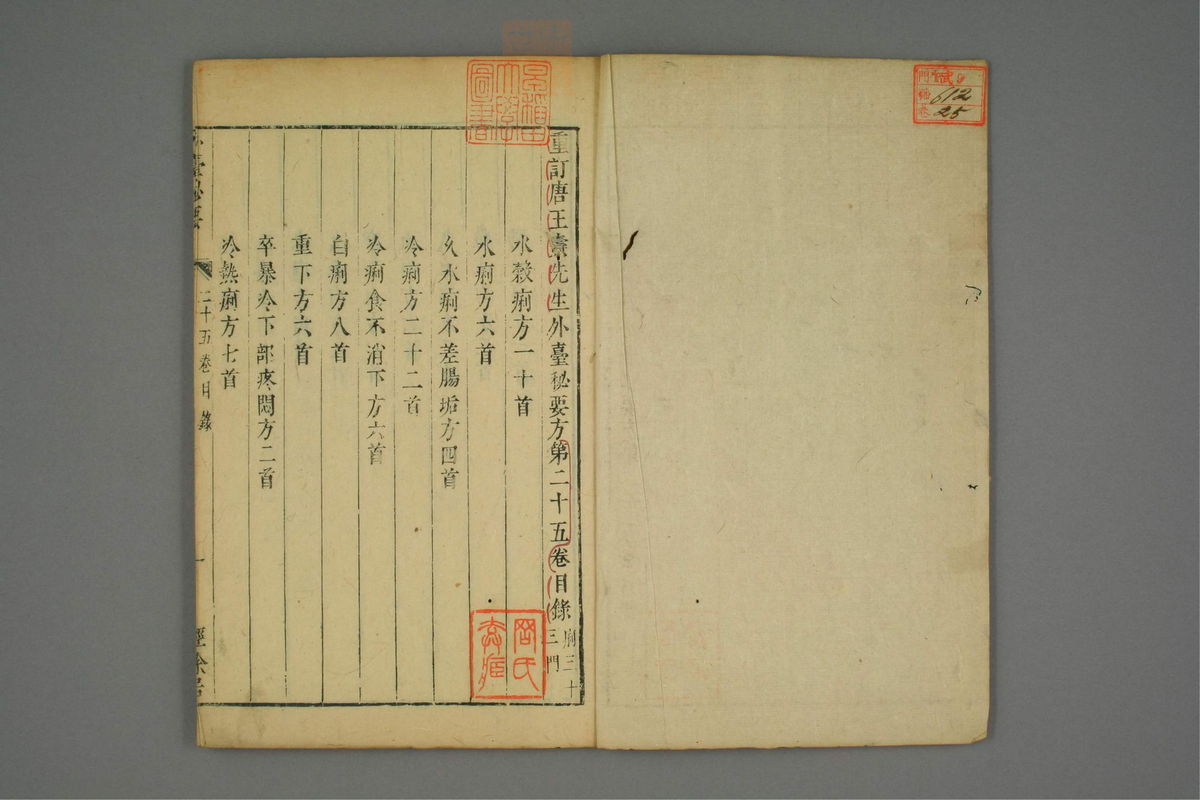 重訂唐王燾先生外臺秘要方第二十五卷目錄 痢三十三門
水穀痢方一十首
水痢方六首
久水痢不差腸垢方四首
冷痢方二十二首
冷痢食不消下方六首
白痢方八首
重下方六首
卒暴冷下部疼悶方二首
冷熱痢方七首
二十五卷目錄
一
早稻田大學圖書
門
號 612
卷 25